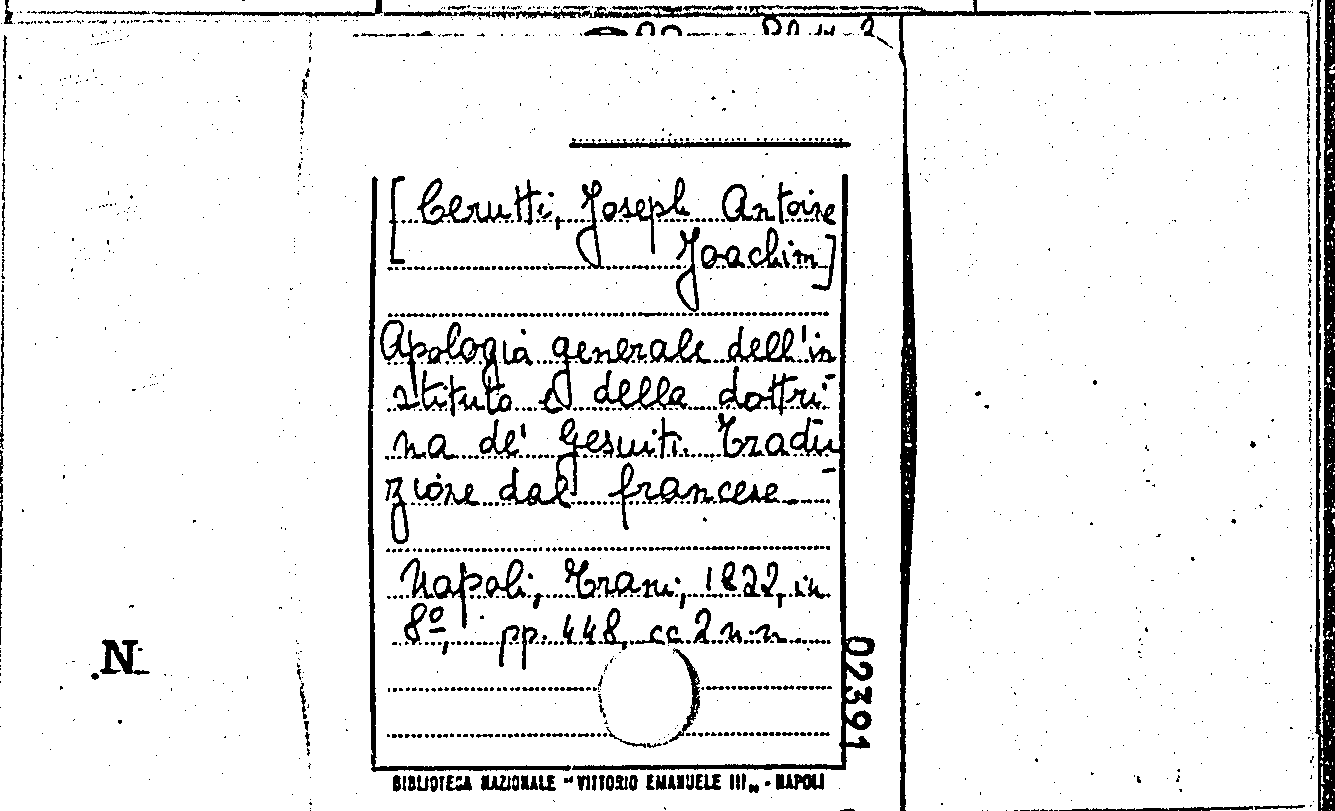 [Cerutti, Joseph Antoine
Joachim]
Apologia generale dell'in
stituto e della dottri-
na de' Gesuiti. Tradu
zione dal francese
Napoli, Trani, 1822, in
8º, pp. 448, cc 2 n.n.
02391
N
BIBLIOTECA NAZIONALE "VITTORIO EMANUELE III„ - NAPOLI